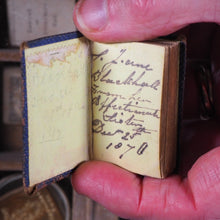 S. Jane
Blackhall
from her
Affectionate
Sister
Dec 25
1870